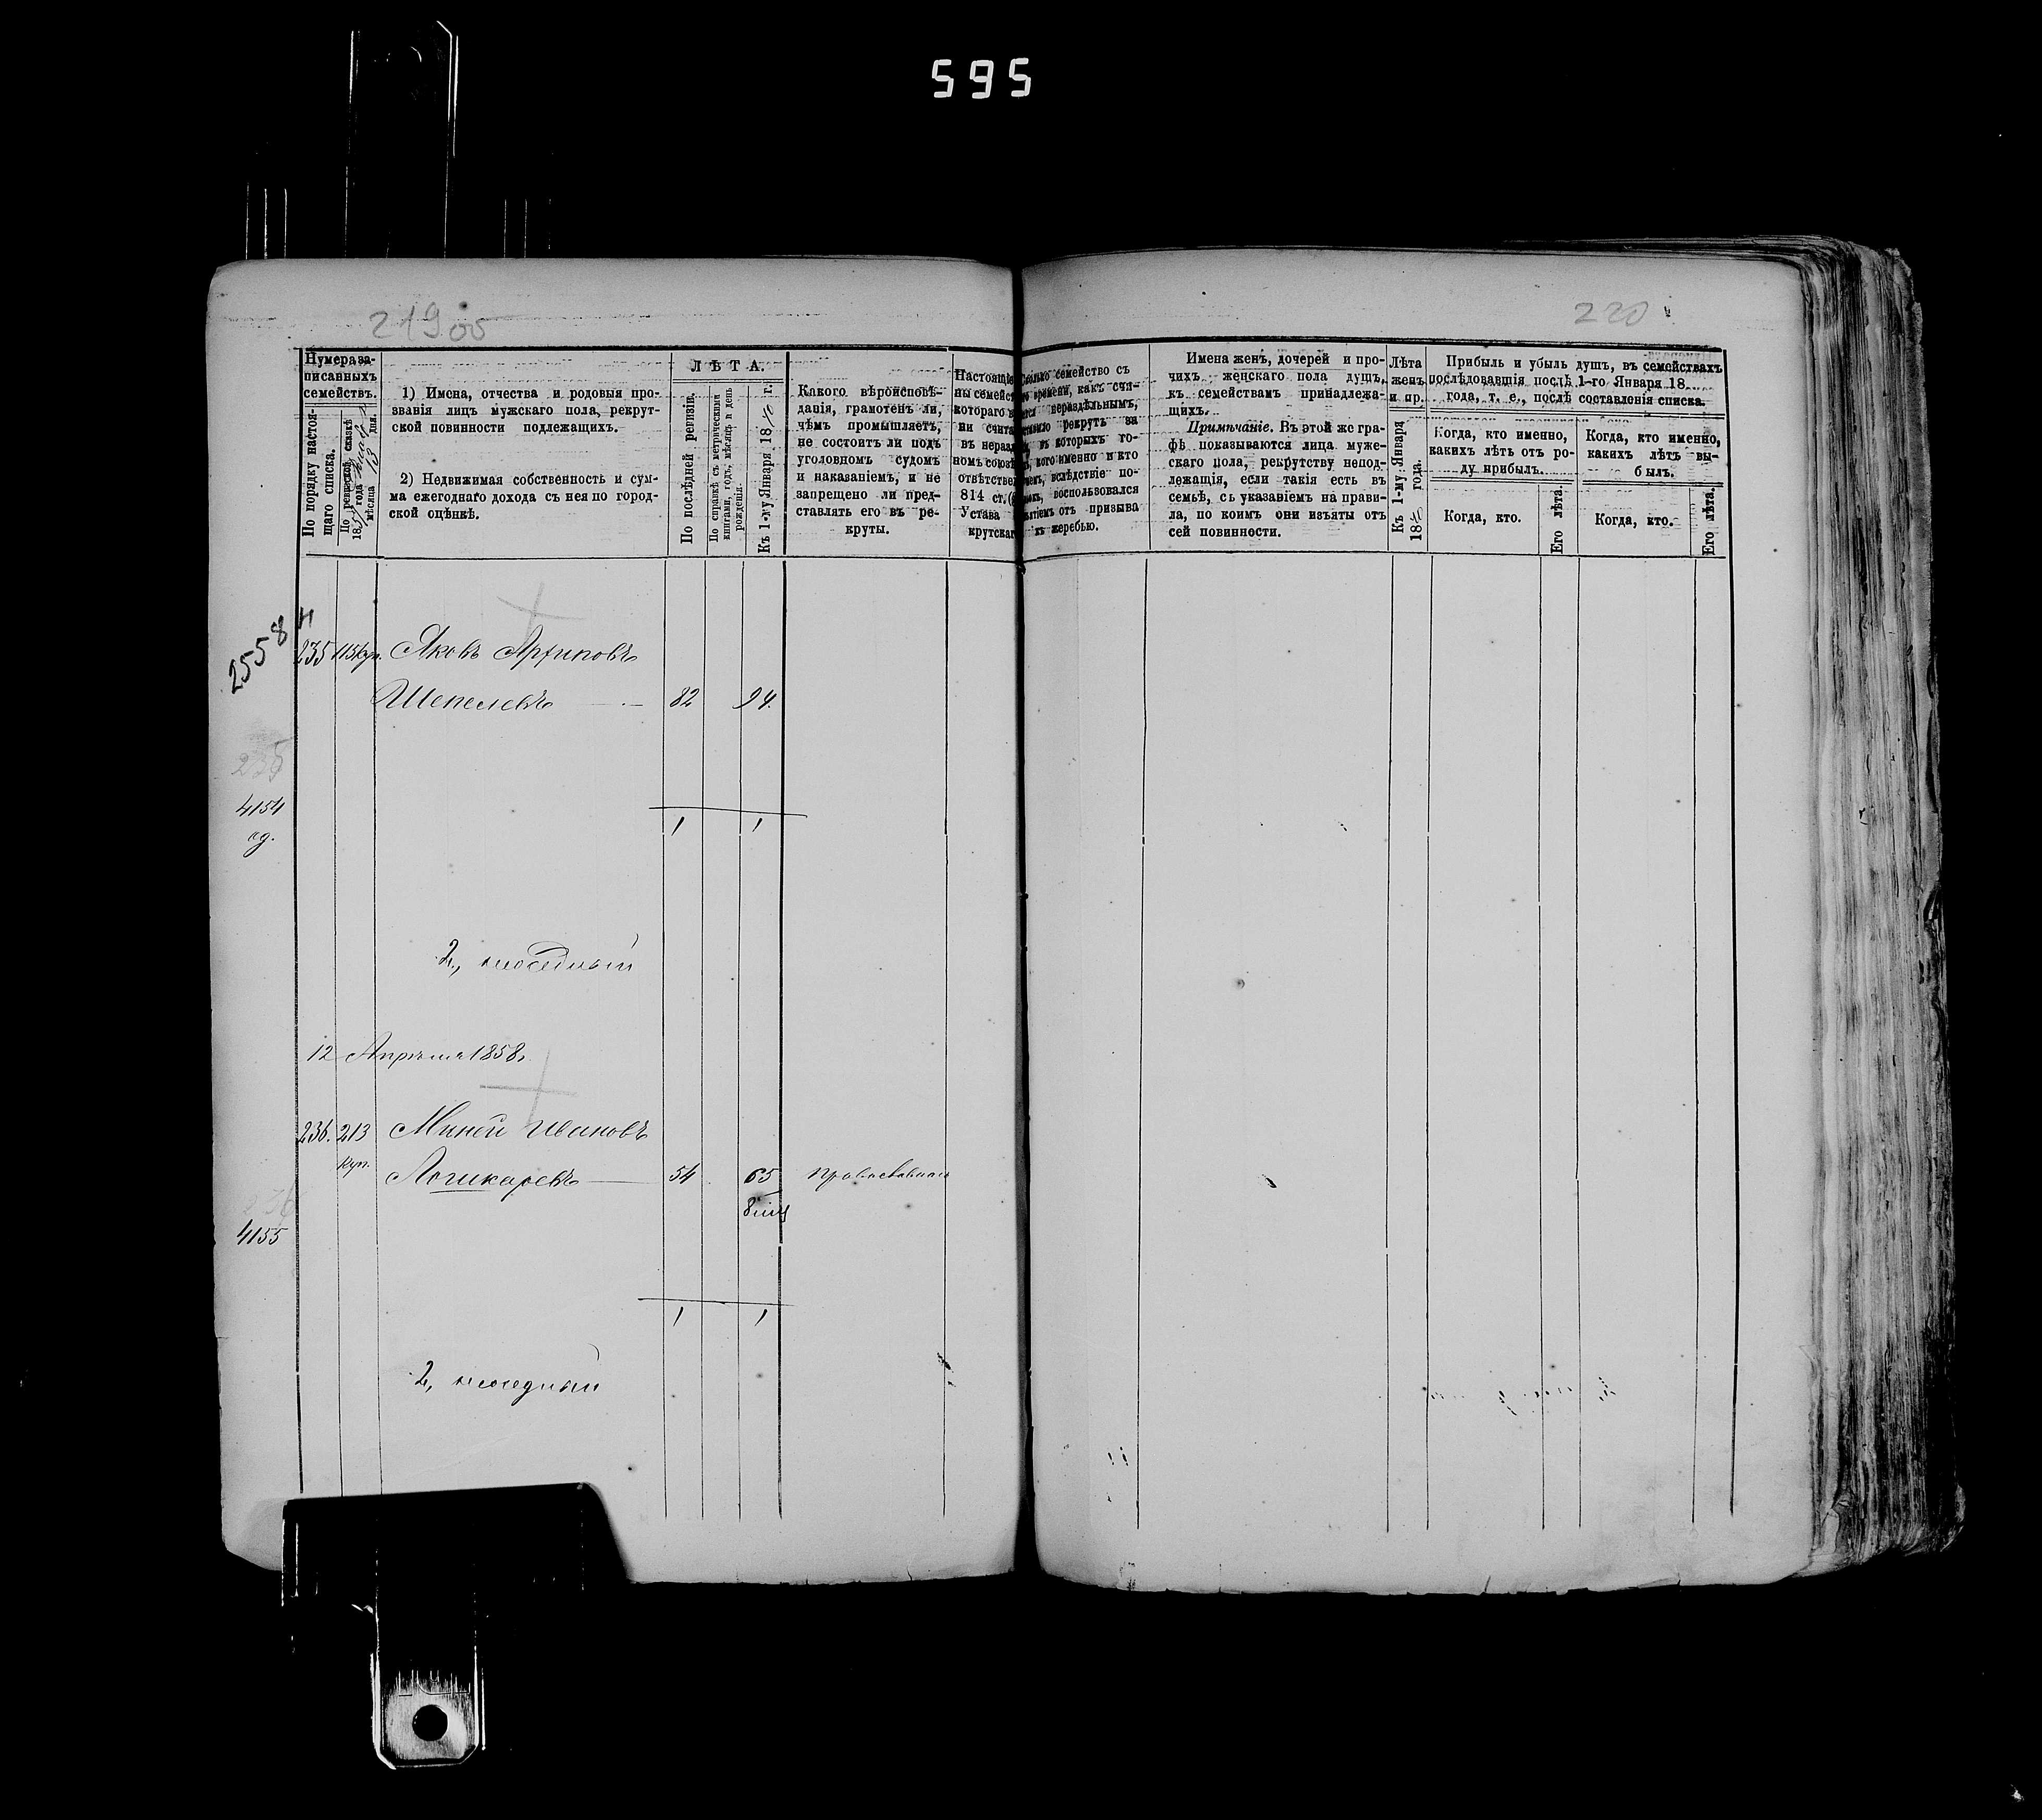 595
219об
220
Нумера за-
писанныхъ
семействъ.
По порядку настоя-
щаго списка.
По ревизской сказкѣ
185 года
мѣсяца 13 дня.
1) Имена, отчества и родовыя про-
званія лицъ мужскаго пола, рекрут-
ской повинности подлежащихъ.
2) Недвижимая собственность и сум-
ма ежегоднаго дохода съ нея по город-
ской оцѣнкѣ.
ЛѢТА.
По послѣдней ревизіи.
По справкѣ съ метрическими
книгами, годъ, мѣсяцъ и день
рожденія.
Къ 1-му Января 1870 г.
Какого вѣроисповѣ-
данія, грамотенъ ли,
чѣмъ промышляетъ,
не состоитъ ли подъ
уголовномъ судомъ
и наказаніемъ, и не
запрещено ли пред-
ставлять его въ ре-
круты.
Настоящіе
ны семейст
котораго в
ни счита
въ нераз
номъ союз
отвѣтствен
814 ст.
Устава
крутскаг
Сколько семейство съ
времени, какъ счи-
нераздѣльнымъ,
рекрутъ за
въ которыхъ го-
кого именно и кто
вслѣдствіе по-
воспользовался
отъ призыва
къ жеребью.
Имена женъ, дочерей и про-
чихъ женскаго пола душъ,
къ семействамъ принадлежа-
щихъ.
Примѣчаніе. Въ этой же гра-
фѣ показываются лица муже-
скаго пола, рекрутству непод-
лежащія, если такія есть въ
семьѣ, съ указаніемъ на прави-
ла, по коимъ они изъяты отъ
сей повинности.
Лѣта
женъ
и пр.
Къ 1-му Января
1870 года.
Прибыль и убыль душъ, въ семействахъ
послѣдовавшія послѣ 1-го Января 18
года, т. е., послѣ составленія списка.
Когда, кто именно,
какихъ лѣтъ отъ ро-
ду прибылъ.
Когда, кто именно,
какихъ лѣтъ вы-
былъ.
Когда, кто.
Его лѣта.
Когда, кто.
Его лѣта.
2558
235 115 куп. Яковъ Архиповъ
Шепелевъ 82 94.
235
4154
од.
1 1
2, неоседлый
12 Апрѣля 1858.
236. 213 Миней Ивановъ
куп.
Логикаревъ 54 65 православнаго
236
4155
1 1
2, неоседлый